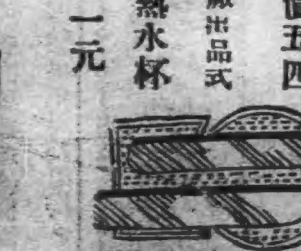 價五四
廠出品式
熱水杯
一元